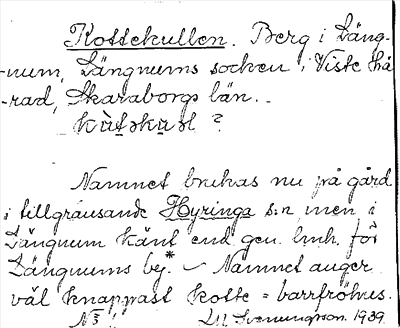 Kottekullen. Berg i Läng-
-num, Längnums socken i Viste hä
-rad, Skaraborgs län.
?
Namnet brukas nu på gård
i tillgränsande Hyringa s:n, men i
Längnum känt end. gen. lmh. för
Längnums by.* – Namnet anger
väl knappast kotte = barrfröhus.
1939